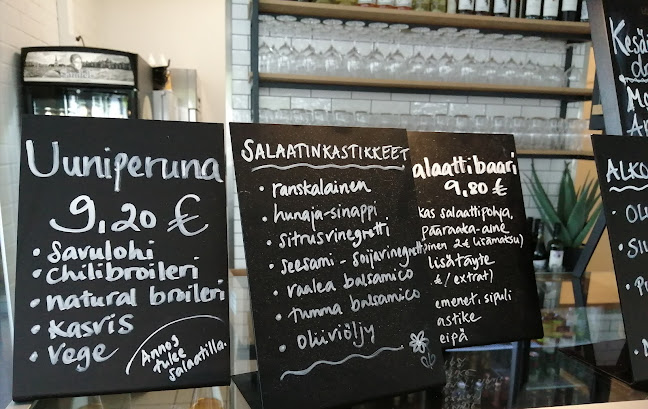 Uuniperuna
9,20 €
• Savulohi
• Chilibroileri
• natural broileri
• Kasvis
• Vege
Annos
tulee
salaatilla.
SALAATINKASTIKKEET
• ranskalainen
• hunaja-sinappi
• sitrusvinegretti
• seesami-soijavinegretti
• vaalea balsamico
• tumma balsamico
• oliiviöljy
alaattibaari
9,80 €
kas salaattipohja,
pääraaka-aine
inen 2€ lisämaksu)
lisätäyte
€/extrat)
emenet, sipuli
astike
eipä
Kesä
ALKO